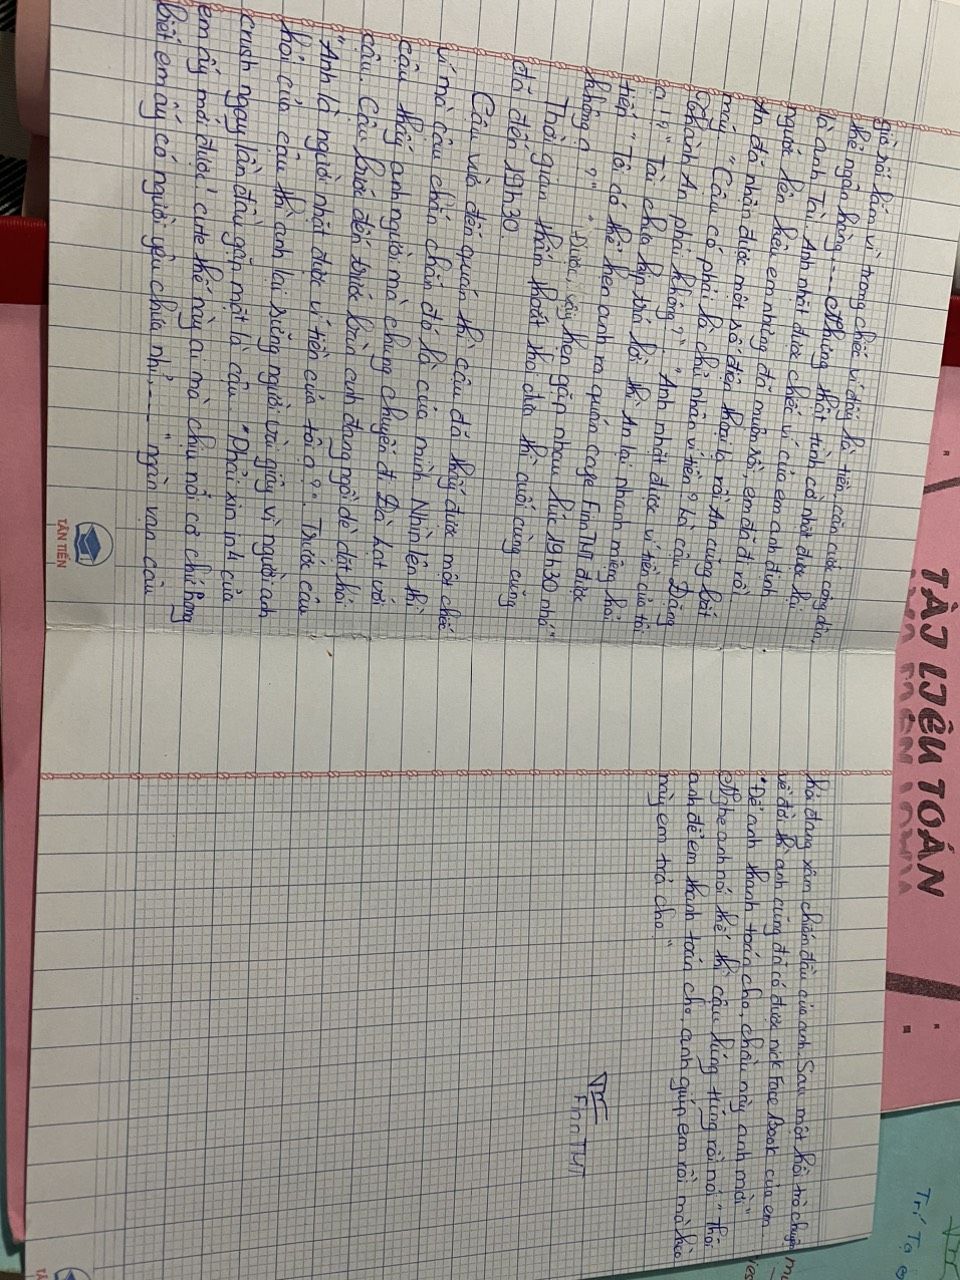 giờ rồi lắm vì trong chiếc ví đầy đủ tiền, căn cước công dân,
thẻ ngân hàng.... Nhưng thật tình cờ nhặt được lại
là anh Tài. Anh nhặt được chiếc ví của em anh định
người lên kêu em nhưng đã muộn rồi, em đã đi rồi
An đã nhận được một số điện thoại lạ rồi An cũng bắt
máy "Cậu có phải là chủ nhân ví tiền? là cậu Đặng
Thành An phải không?" "Anh nhặt được ví tiền của tôi
ạ!?" Tài chưa kịp trả lời thì An lại nhanh miệng hỏi
tiếp "Tôi có thể hẹn anh ra quán cafe FinnTMT được
không ạ?" "Được, vậy hẹn gặp nhau lúc 19h30 nhá"
Thời gian thấm thoát tho đưa thì cuối cùng cũng
đã đến 19h30.
Cậu vừa đến quán thì cậu đã thấy được một chiếc
ví mà cậu chắn chắn đó là của mình. Nhìn lên thì
cậu thấy anh người mà chung chuyến đi Đà Lạt với
cậu. Cậu bước đến trước bàn anh đang ngồi dè dặt hỏi
"Anh là người nhặt được ví tiền của tôi ạ?". Trước câu
hỏi của cậu thì anh lại sững người vài giây vì người anh
crush ngay lần đầu gặp mặt là cậu. "Phải xin in4 của
em ấy mới được, cute thế này ai mà chịu nổi cơ chứ hong
biết em ấy có người yêu chưa nhỉ....." ngàn vạn câu
TÂN TIẾN
hỏi đang xâm chiếm đầu của anh. Sau một hồi trò chuyện
về đời thì anh cũng đã có được nick FaceBook của em
"Để anh thanh toán cho, chầu này anh mời"
Nghe anh nói thế thì cậu lúng túng rồi nói "Thôi
anh để em thanh toán cho, anh giúp em rồi mà kèo
này em trả cho."
FinnTMT
TÀI LIỆU TOÁN
Trí Tạ